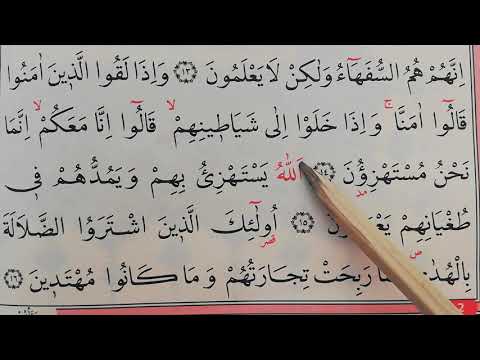 اِنَّهُمْ هُمُ السُّفَهَٓاءُ وَلٰكِنْ لَا يَعْلَمُونَ ﴿١٣﴾ وَاِذَا لَقُوا الَّذ۪ينَ اٰمَنُوا
قَالُٓوا اٰمَنَّاۚ وَاِذَا خَلَوْا اِلٰى شَيَاط۪ينِهِمْۙ قَالُٓوا اِنَّا مَعَكُمْۙ اِنَّمَا
نَحْنُ مُسْتَهْزِؤُ۫نَ ﴿١٤﴾ اَللّٰهُ يَسْتَهْزِئُ بِهِمْ وَيَمُدُّهُمْ ف۪ي
مد
طُغْيَانِهِمْ ﴿١٥﴾ اُو۬لٰٓئِكَ الَّذ۪ينَ اشْتَرَوُا الضَّلَالَةَ
قصر
رَبِحَتْ تِجَارَتُهُمْ وَمَا كَانُوا مُهْتَد۪ينَ ﴿١٦﴾
2